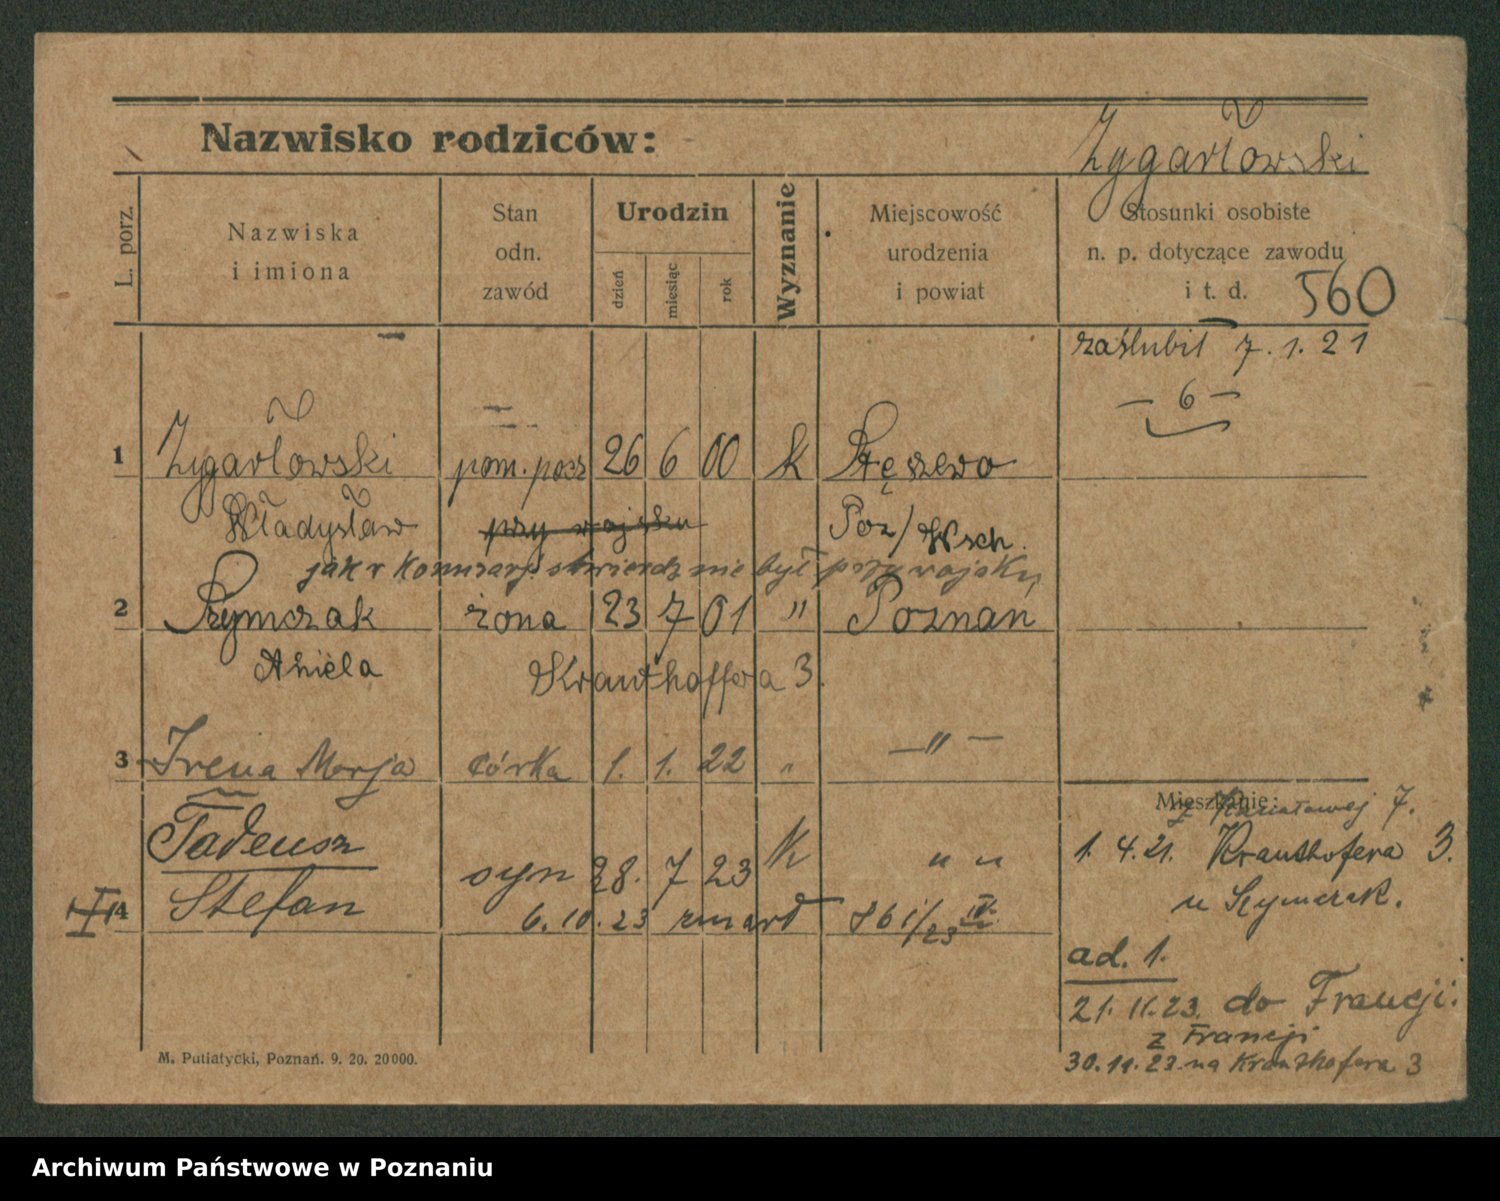 Nazwisko rodziców: Zygarłowski
L. porz.
Nazwiska i imiona
Stan odn. zawód
Urodzin
dzień miesiąc rok
Wyznanie
Miejscowość urodzenia i powiat
Stosunki osobiste n. p. dotyczące zawodu i t. d. 560
zaślubił 7. 1. 21
— 6 —
1 Zygarłowski pom. pocz 26 6 00 k
Władysław przy wojsku Poz/Wsch.
nie był przy wojsku
2 Szymczak żona 23 7 01 " Poznań
Aniela Krauthoffera 3.
3 Irena Marja córka 1. 1. 22 " — " —
Tadeusz syn 28. 7 23 k " "
4 Stefan 6. 10. 23 zmarł 761/23 IV.
Mieszkanie:
7.
1. 4. 21. Krauthofera 3.
u Szymczak.
ad. 1.
21. 11. 23. do Francji.
z Francji
30. 11. 23. na Krauthofera 3
M. Putiatycki, Poznań. 9. 20. 20000.
Archiwum Państwowe w Poznaniu